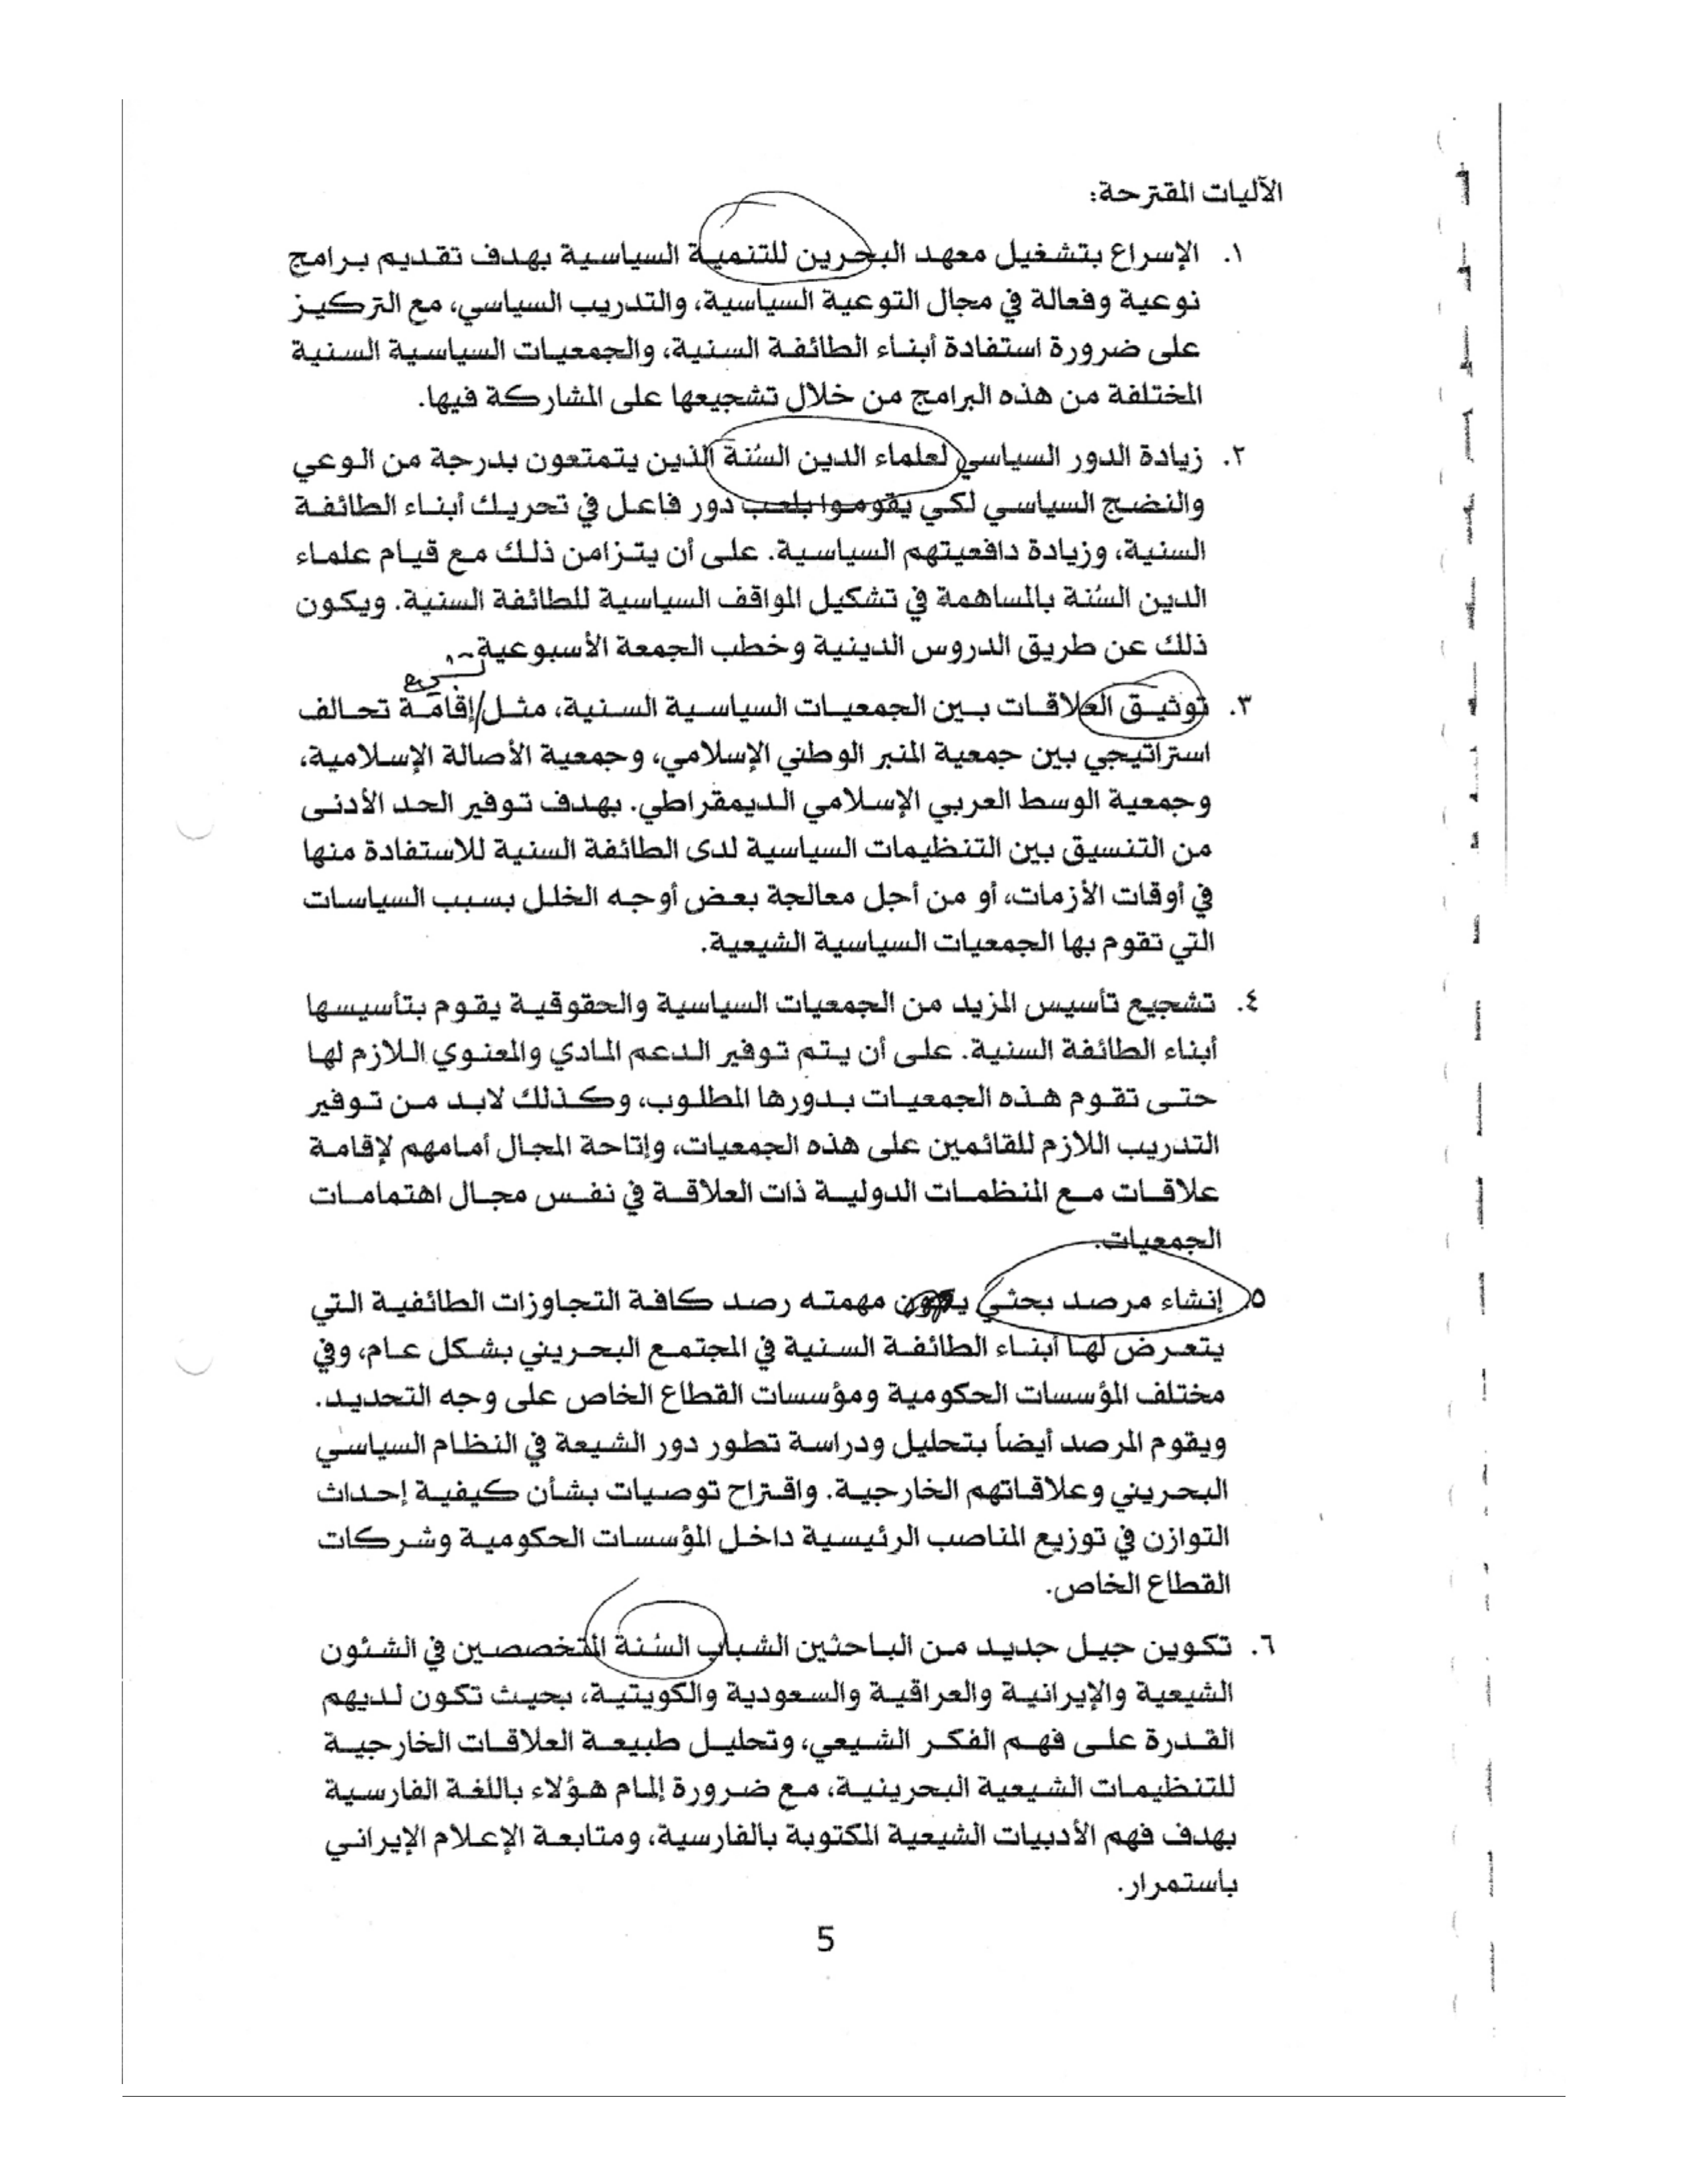 الآليات المقترحة:
١. الإسراع بتشغيل معهد البحرين للتنمية السياسية بهدف تقديم برامج
نوعية وفعالة في مجال التوعية السياسية، والتدريب السياسي، مع التركيز
على ضرورة استفادة أبناء الطائفة السنية، والجمعيات السياسية السنية
المختلفة من هذه البرامج من خلال تشجيعها على المشاركة فيها.
٢. زيادة الدور السياسي لعلماء الدين السُنة الذين يتمتعون بدرجة من الوعي
والنضج السياسي لكي يقوموا بلعب دور فاعل في تحريك أبناء الطائفة
السنية، وزيادة دافعيتهم السياسية. على أن يتزامن ذلك مع قيام علماء
الدين السُنة بالمساهمة في تشكيل المواقف السياسية للطائفة السنية. ويكون
ذلك عن طريق الدروس الدينية وخطب الجمعة الأسبوعية.
٣. توثيق العلاقات بين الجمعيات السياسية السنية، مثل إقامة تحالف
استراتيجي بين جمعية المنبر الوطني الإسلامي، وجمعية الأصالة الإسلامية،
وجمعية الوسط العربي الإسلامي الديمقراطي. بهدف توفير الحد الأدنى
من التنسيق بين التنظيمات السياسية لدى الطائفة السنية للاستفادة منها
في أوقات الأزمات، أو من أجل معالجة بعض أوجه الخلل بسبب السياسات
التي تقوم بها الجمعيات السياسية الشيعية.
٤. تشجيع تأسيس المزيد من الجمعيات السياسية والحقوقية يقوم بتأسيسها
أبناء الطائفة السنية. على أن يتم توفير الدعم المادي والمعنوي اللازم لها
حتى تقوم هذه الجمعيات بدورها المطلوب، وكذلك لابد من توفير
التدريب اللازم للقائمين على هذه الجمعيات، وإتاحة المجال أمامهم لإقامة
علاقات مع المنظمات الدولية ذات العلاقة في نفس مجال اهتمامات
الجمعيات.
٥. إنشاء مرصد بحثي مهمته رصد كافة التجاوزات الطائفية التي
يتعرض لها أبناء الطائفة السنية في المجتمع البحريني بشكل عام، وفي
مختلف المؤسسات الحكومية ومؤسسات القطاع الخاص على وجه التحديد.
ويقوم المرصد أيضاً بتحليل ودراسة تطور دور الشيعة في النظام السياسي
البحريني وعلاقاتهم الخارجية. واقتراح توصيات بشأن كيفية إحداث
التوازن في توزيع المناصب الرئيسية داخل المؤسسات الحكومية وشركات
القطاع الخاص.
٦. تكوين جيل جديد من الباحثين الشباب السُنة المتخصصين في الشئون
الشيعية والإيرانية والعراقية والسعودية والكويتية، بحيث تكون لديهم
القدرة على فهم الفكر الشيعي، وتحليل طبيعة العلاقات الخارجية
للتنظيمات الشيعية البحرينية، مع ضرورة إلمام هؤلاء باللغة الفارسية
بهدف فهم الأدبيات الشيعية المكتوبة بالفارسية، ومتابعة الإعلام الإيراني
باستمرار.
5